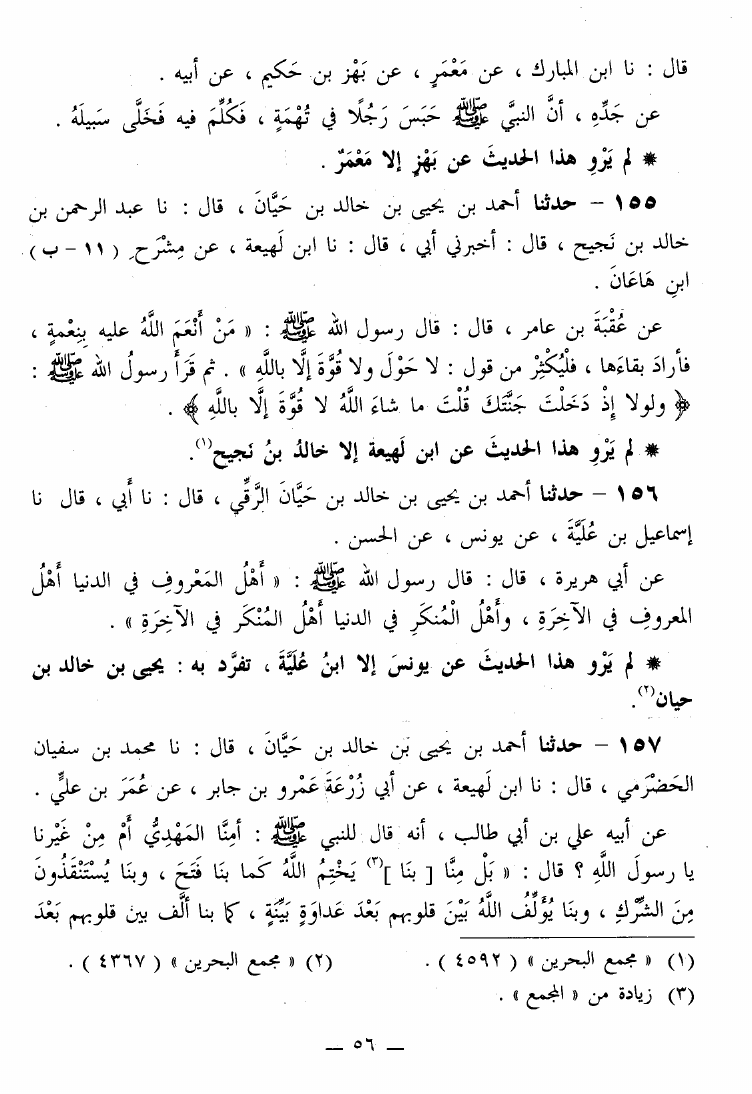 قال : نا ابن المبارك ، عن مَعْمَرٍ ، عن بَهْز بن حَكيم ، عن أبيه .
عن جَدِّهِ ، أنَّ النبيَّ ﷺ حَبَسَ رَجُلًا في تُهْمَةٍ ، فَكُلِّمَ فيه فَخَلَّى سَبيلَهُ .
* لم يَرْوِ هذا الحديثَ عن بَهْزٍ إلا مَعْمَرٌ .
١٥٥ – حدثنا أحمد بن يحيى بن خالد بن حَيَّانَ ، قال : نا عبد الرحمن بن
خالد بن نَجيح ، قال : أخبرني أبي ، قال : نا ابن لَهيعة ، عن مِشْرَح ِ ( ١١ – ب )
ابنِ هَاعَانَ .
عن عُقْبَةَ بن عامر ، قال : قال رسول الله ﷺ : « مَنْ أَنْعَمَ اللَّهُ عليه بِنِعْمةٍ ،
فأرادَ بقاءَها ، فلْيُكْثِرْ من قول : لا حَوْلَ ولا قُوَّةَ إلَّا باللَّهِ » . ثم قرَأَ رسولُ الله ﷺ :
﴿ ولولا إذْ دَخَلْتَ جَنَّتَكَ قُلْتَ ما شاءَ اللَّهُ لا قُوَّةَ إلَّا باللَّهِ ﴾ .
* لم يَرْوِ هذا الحديثَ عن ابن لَهيعة إلا خالدُ بنُ نَجيح(١).
١٥٦ – حدثنا أحمد بن يحيى بن خالد بن حَيَّانَ الرَّقِّي ، قال : نا أَبي ، قال نا
إسماعيل بن عُلَيَّةَ ، عن يونس ، عن الحسن .
عن أبي هريرة ، قال : قال رسول الله ﷺ : « أَهْلُ المَعْروفِ في الدنيا أَهْلُ
المعروفِ في الآخِرَةِ ، وأَهْلُ الْمُنكَرِ في الدنيا أَهْلُ المُنْكَر في الآخِرَةِ » .
* لم يَرْوِ هذا الحديثَ عن يونسَ إلا ابنُ عُلَيَّةَ ، تفرَّد به : يحيى بن خالد بن
حيان(٢).
١٥٧ – حدثنا أحمد بن يحيى بن خالد بن حَيَّانَ ، قال : نا محمد بن سفيان
الحَضْرَمي ، قال : نا ابن لَهيعة ، عن أبي زُرْعَةَ عَمْرو بن جابر ، عن عُمَرَ بن عليٍّ .
عن أبيه علي بن أبي طالب ، أنه قال للنبي ﷺ : أمِنَّا المَهْدِيُّ أَمْ مِنْ غَيْرنا
يا رسولَ اللَّهِ ؟ قال : « بَلْ مِنَّا [ بنَا ](٣) يَخْتِمُ اللَّهُ كَما بنَا فَتَحَ ، وبنَا يُسْتَنْقَذُونَ
مِنَ الشِّرْكِ ، وبنَا يُؤَلِّفُ اللَّهُ بَيْنَ قلوبهم بَعْدَ عداوَةٍ بَيِّنَةٍ ، كما بنا ألَّف بين قلوبهم بَعْدَ
(١) « مجمع البحرين » ( ٤٥٩٢ ) . (٢) « مجمع البحرين » ( ٤٣٦٧ ) .
(٣) زيادة من « المجمع » .
— ٥٦ —